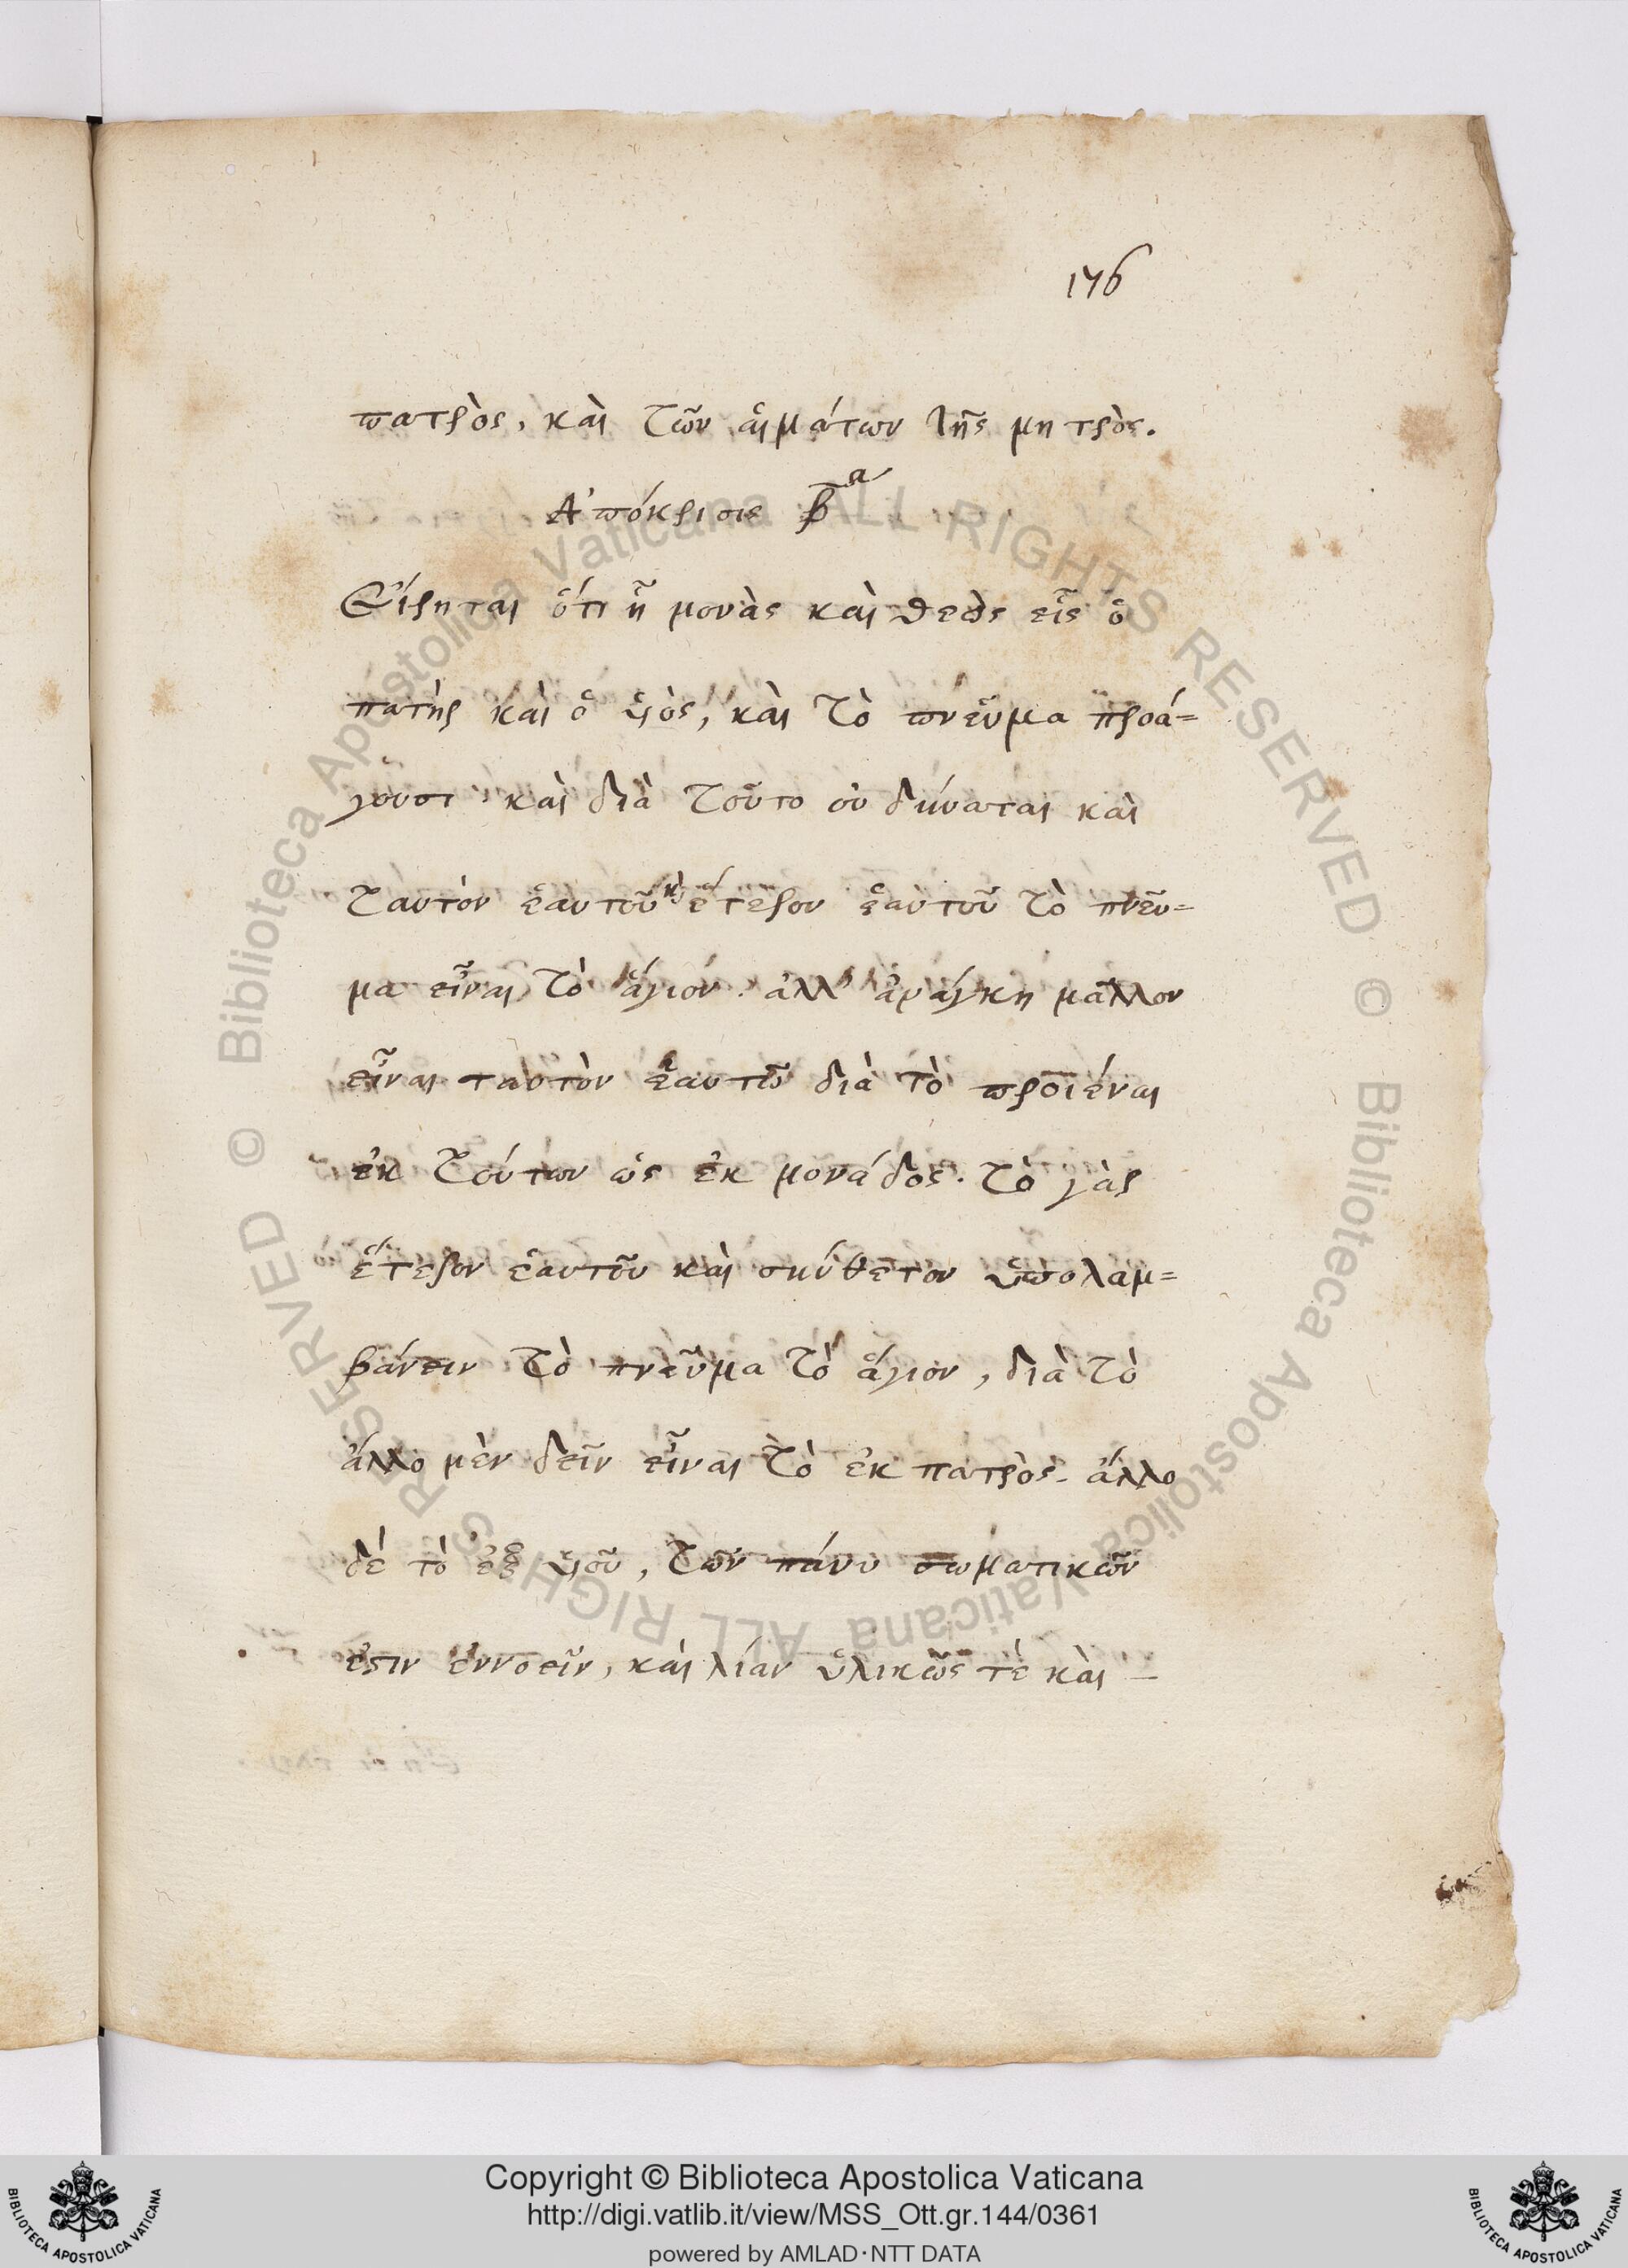 176
πατρὸς, καὶ τῶν αἱμάτων τῆς μητρὸς.
Ἀπόκρισις β̅α
Εἴρηται ὅτι ᾗ μονὰς καὶ θεὸς εἷς ὁ
πατὴρ καὶ ὁ ὑιὸς, καὶ τὸ πνεῦμα προά=
γουσι· καὶ διὰ τοῦτο οὐ δύναται καὶ
ταυτὸν ἑαυτοῦ κ̀ ἕτερον ἑαυτοῦ τὸ πνεῦ=
μα εἶναι τὸ ἅγιον. ἀλλ' ἀνάγκη μᾶλλον
εἶναι ταυτὸν ἑαυτῶ διὰ τὸ προϊέναι
ἐκ τούτων ὡς ἐκ μονάδος. τὸ γὰρ
ἕτερον ἑαυτοῦ καὶ σύνθετον ὑπολαμ=
βάνειν τὸ πνεῦμα τὸ ἅγιον, διὰ τὸ
ἄλλο μὲν δεῖν εἶναι τὸ ἐκ πατρὸς. ἄλλο
δὲ τὸ ἐξ ὑιοῦ, τῶν πάνυ σωματικῶν
ἐστιν ἐννοεῖν, καὶ λίαν ὑλικῶς τὲ καὶ –
Copyright © Biblioteca Apostolica Vaticana
http://digi.vatlib.it/view/MSS_Ott.gr.144/0361
powered by AMLAD·NTT DATA
BIBLIOTECA APOSTOLICA VATICANA
BIBLIOTECA APOSTOLICA VATICANA
© Biblioteca Apostolica Vaticana ALL RIGHTS RESERVED © Biblioteca Apostolica Vaticana ALL RIGHTS RESERVED